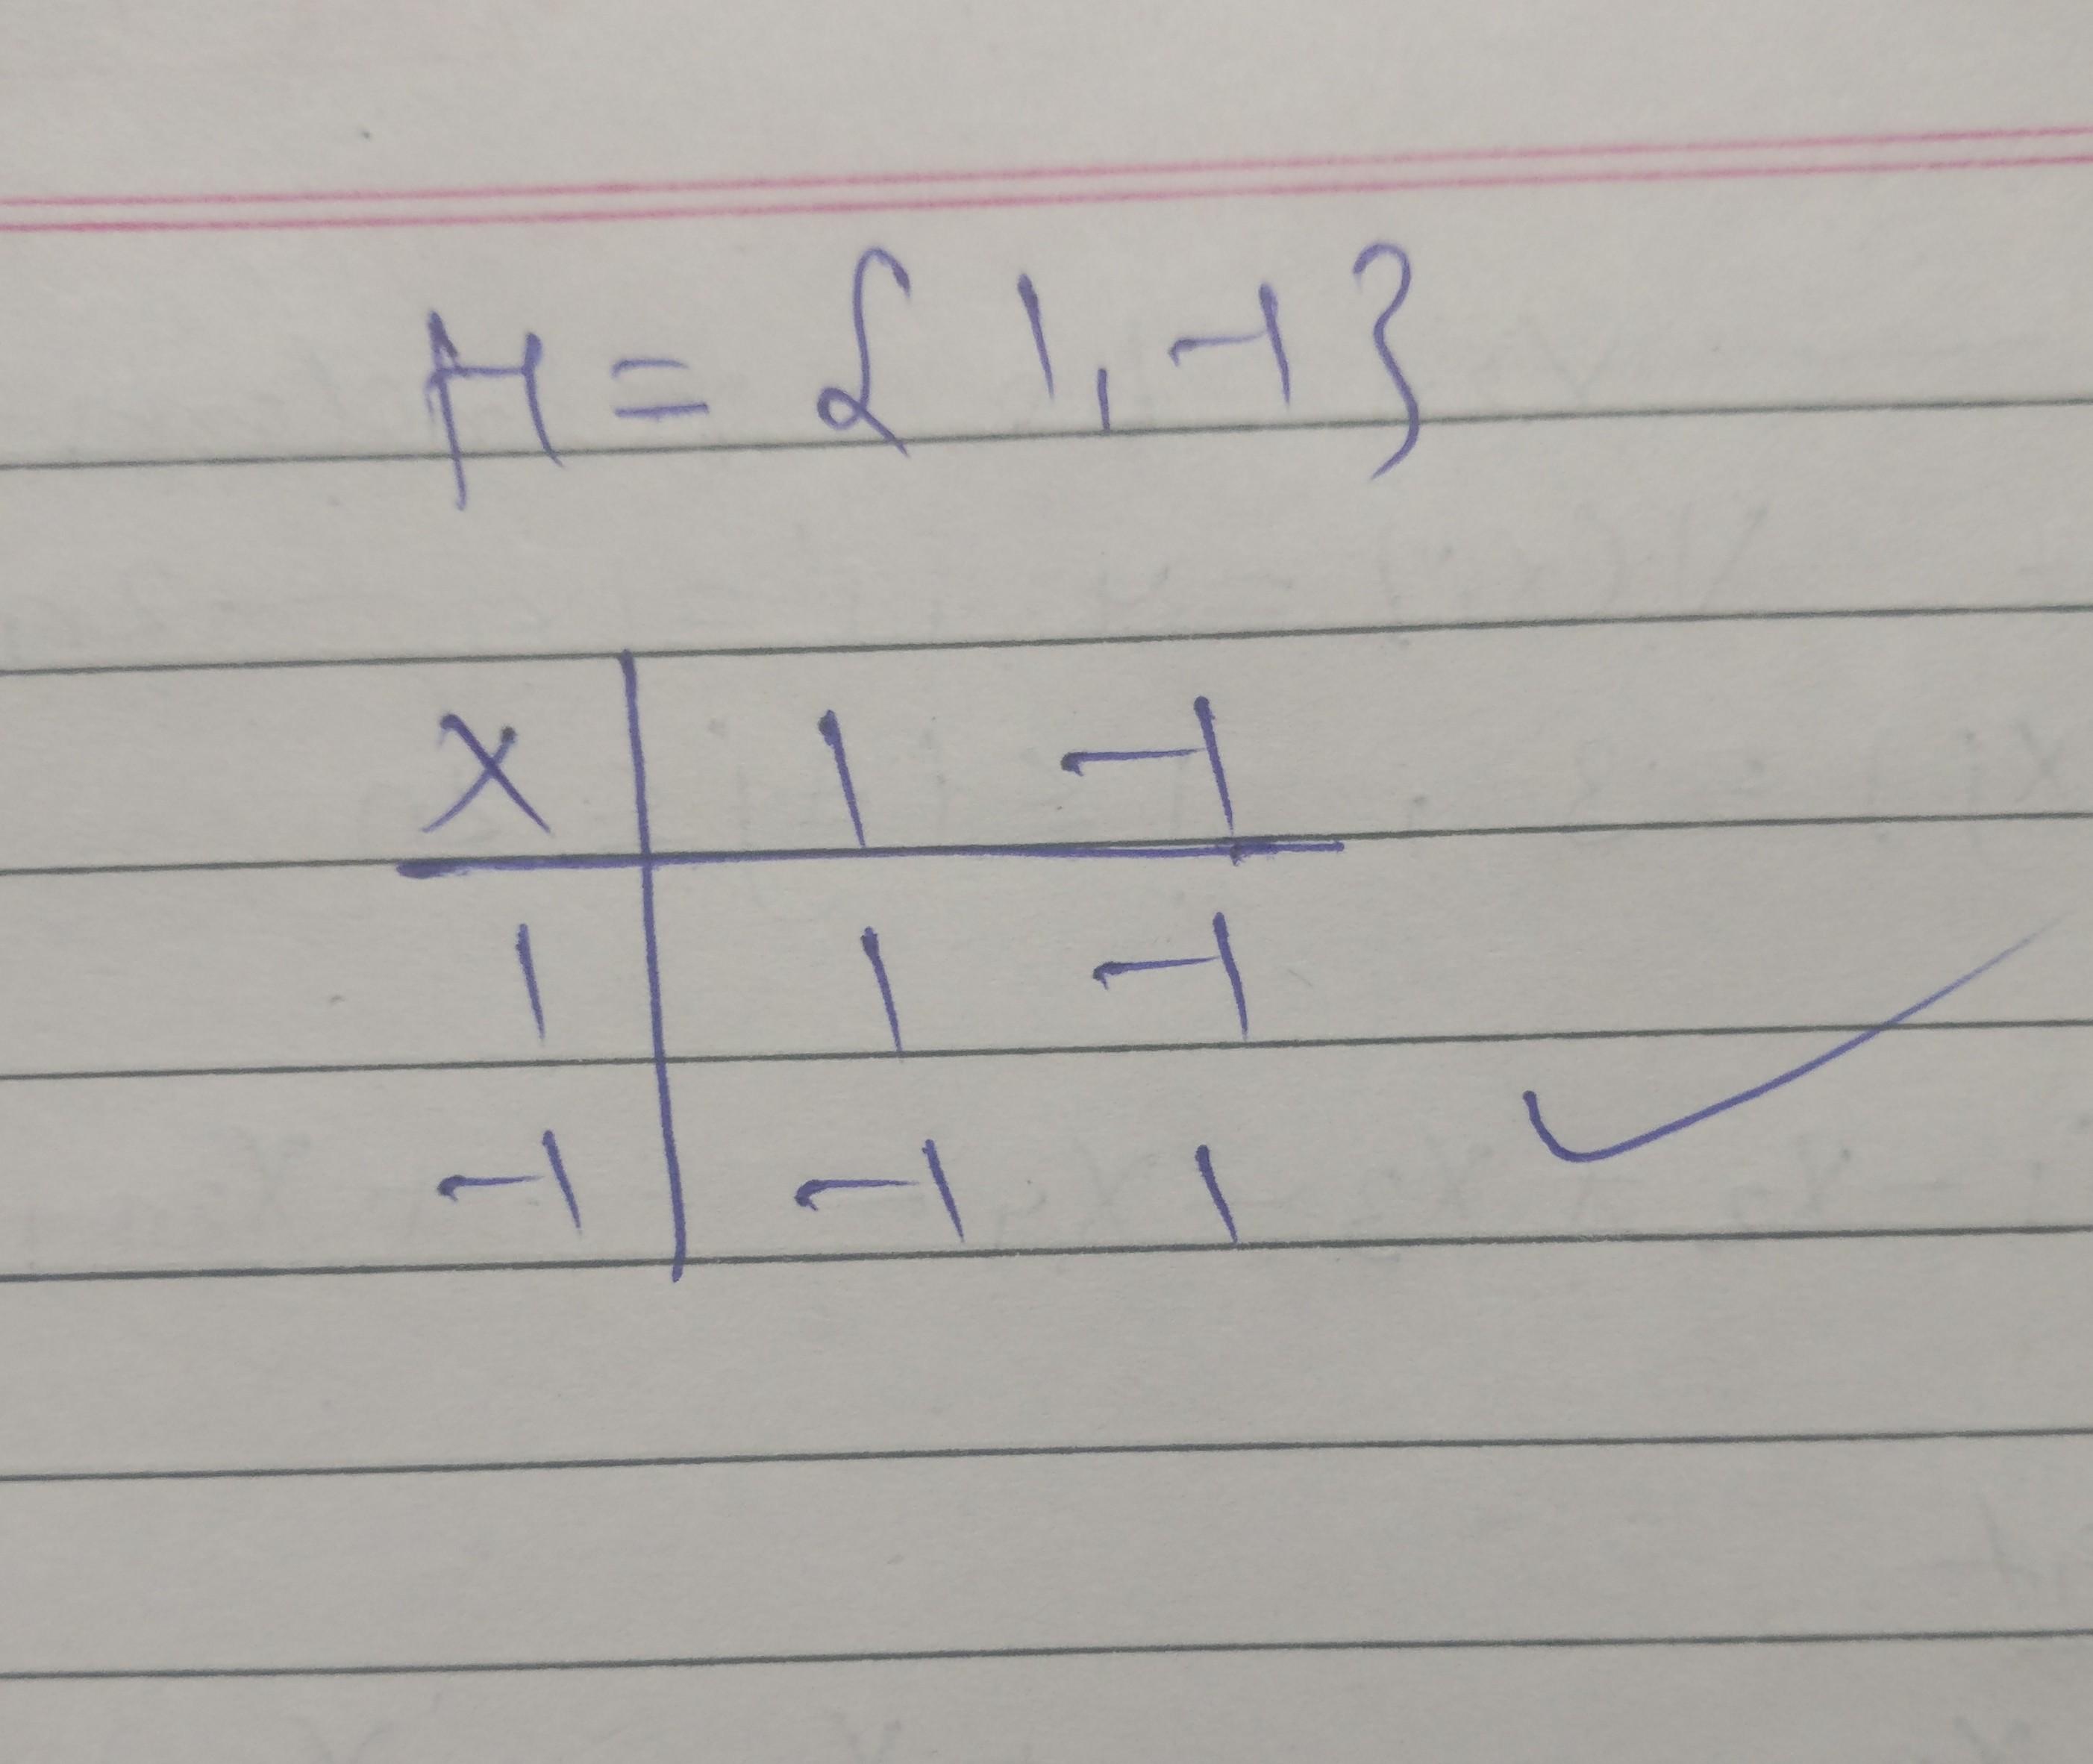 H = { 1, -1 }
× | 1 -1
1 | 1 -1
-1 | -1 1 ✓